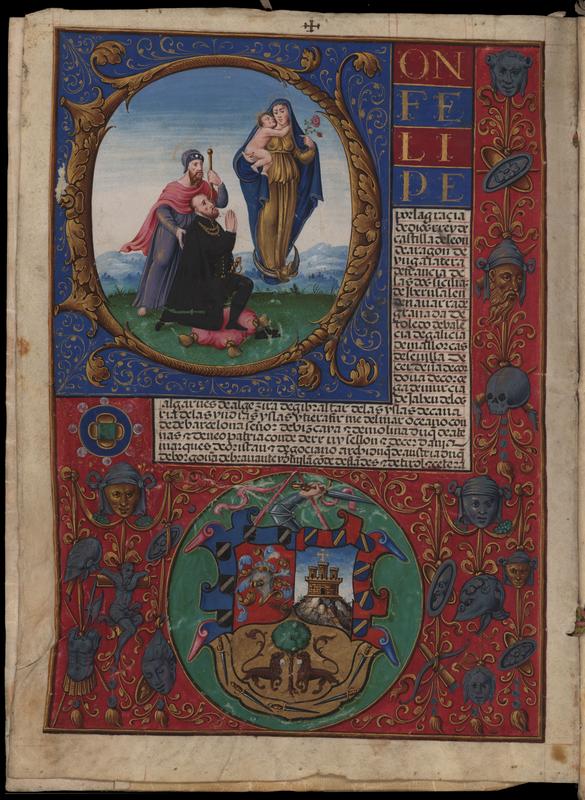 DON
FE
LI
PE
por la gracia
de dios rey de
castilla de leon
de aragon de
ynglaterra
de francia de
las dos sicilias
de Jerusalen
de nauarra de
granada de
toledo de vale
cia de galicia
de mallorcas
de seuilla de
cerdeña de cor
doua de corce
ga de murcia
de Jaen de los
algarues de algezira de gibraltar de las yslas de cana
ria de las yndias yslas y tierra firme del mar oceano con
de de barcelona señor de bizcaya e de molina duq de ate
nas e de neopatria conde de y sellon e de cerdania
marques de oristan e de gociano archiduq de austria duq
de borgoña de brauante y conde de flandes e de tirol